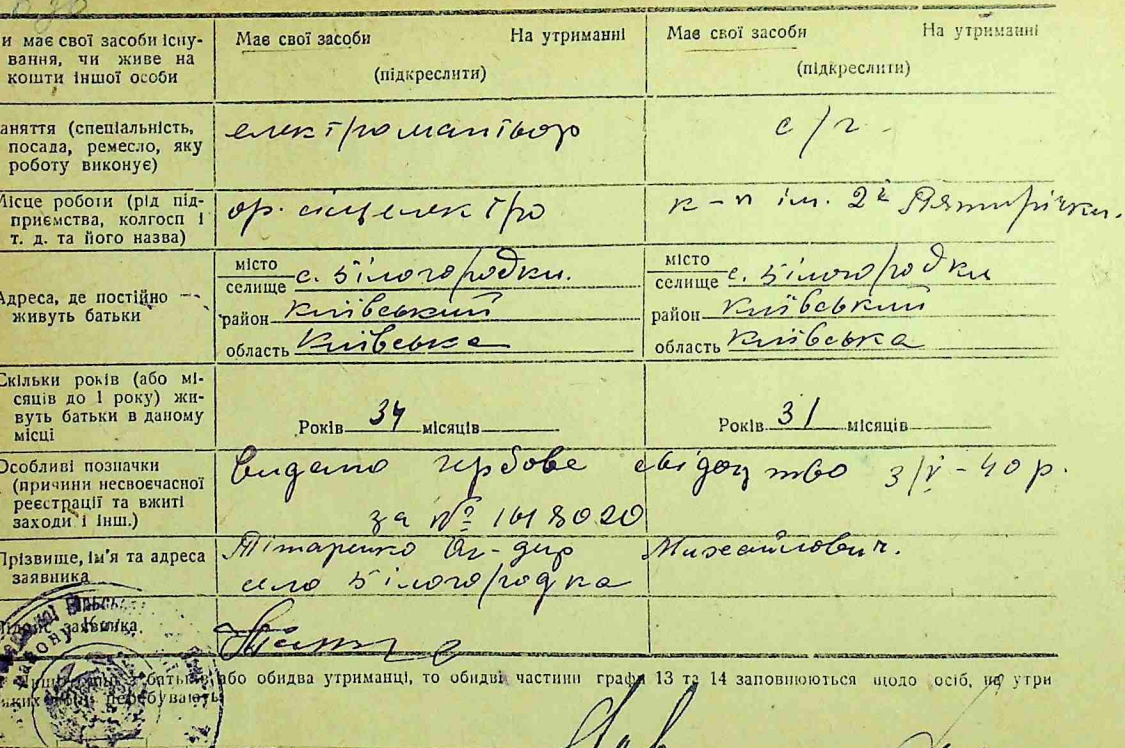 и має свої засоби існу-
вання, чи живе на
кошти іншої особи
Має свої засоби На утриманні
(підкреслити)
Має свої засоби На утриманні
(підкреслити)
аняття (спеціальність,
посада, ремесло, яку
роботу виконує)
електромантьор
с/г.
Місце роботи (рід під-
приємства, колгосп і
т. д. та його назва)
к-п ім. 2ї Пятирічки.
Адреса, де постійно
живуть батьки
місто
селище с. Білогородки.
район Київський
область Київська
місто
селище с. Білогородки
район Київський
область Київська
Скільки років (або мі-
сяців до 1 року) жи-
вуть батьки в даному
місці
Років 34 місяців
Років 31 місяців
Особливі позначки
(причини несвоєчасної
реєстрації та вжиті
заходи і інш.)
Видано гербове свідоцтво 3/V-40 р.
за № 1618020
Прізвище, ім'я та адреса
заявника
Тітаренко Ол-др Михайлович.
село Білогородка
заявника
або обидва утриманці, то обидві частини графи 13 та 14 заповнюються щодо осіб, на утри
яких перебувають